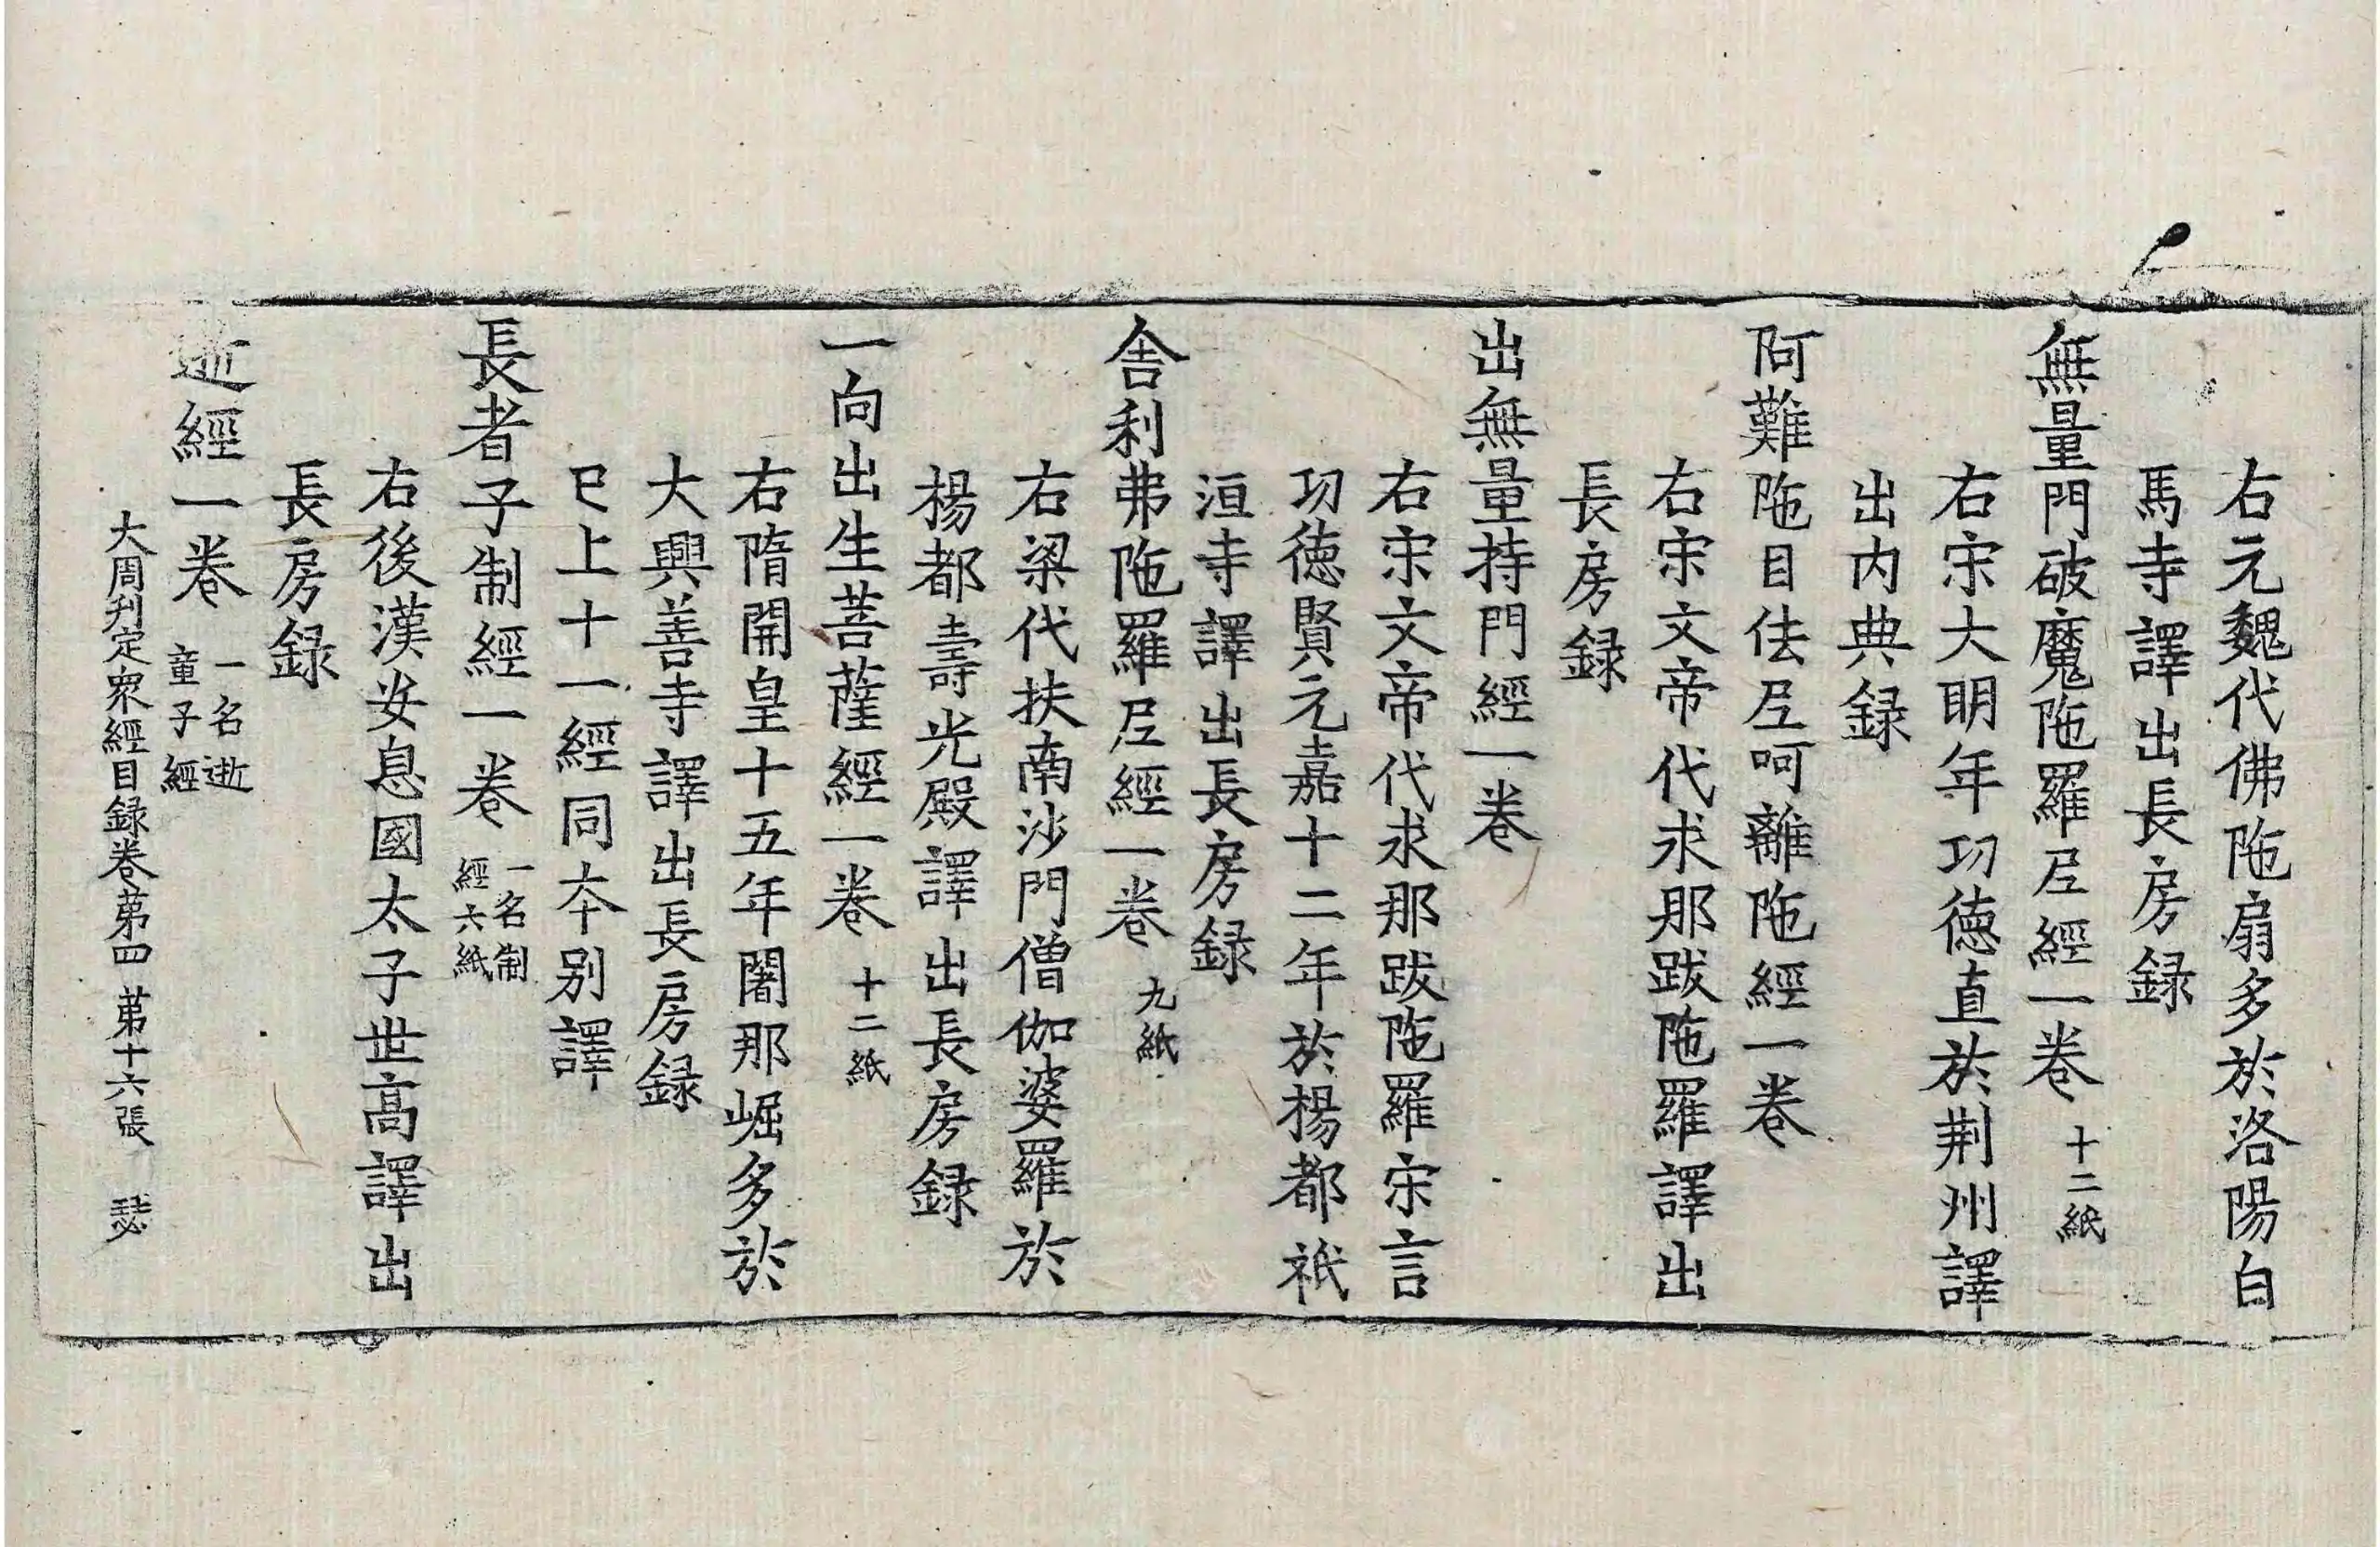 右元魏代佛陁扇多於洛陽白
馬寺譯出長房録
無量門破魔陁羅尼經一卷 十二紙
右宋大明年功德直於荆州譯
出内典録
阿難陁目佉尼呵離陁經一卷
右宋文帝代求那跋陁羅譯出
長房録
出無量持門經一卷
右宋文帝代求那跋陁羅宋言
功德賢元嘉十二年於楊都祇
洹寺譯出長房録
舍利弗陁羅尼經一卷 九紙
右梁代扶南沙門僧伽婆羅於
楊都壽光殿譯出長房録
一向出生菩薩經一卷 十二紙
右隋開皇十五年闍那崛多於
大興善寺譯出長房録
已上十一經同夲別譯
長者子制經一卷 一名制
經六紙
右後漢安息國太子世高譯出
長房録
逝經一卷 一名逝
童子經
大周刋定衆經目録卷苐四 苐十六張 瑟